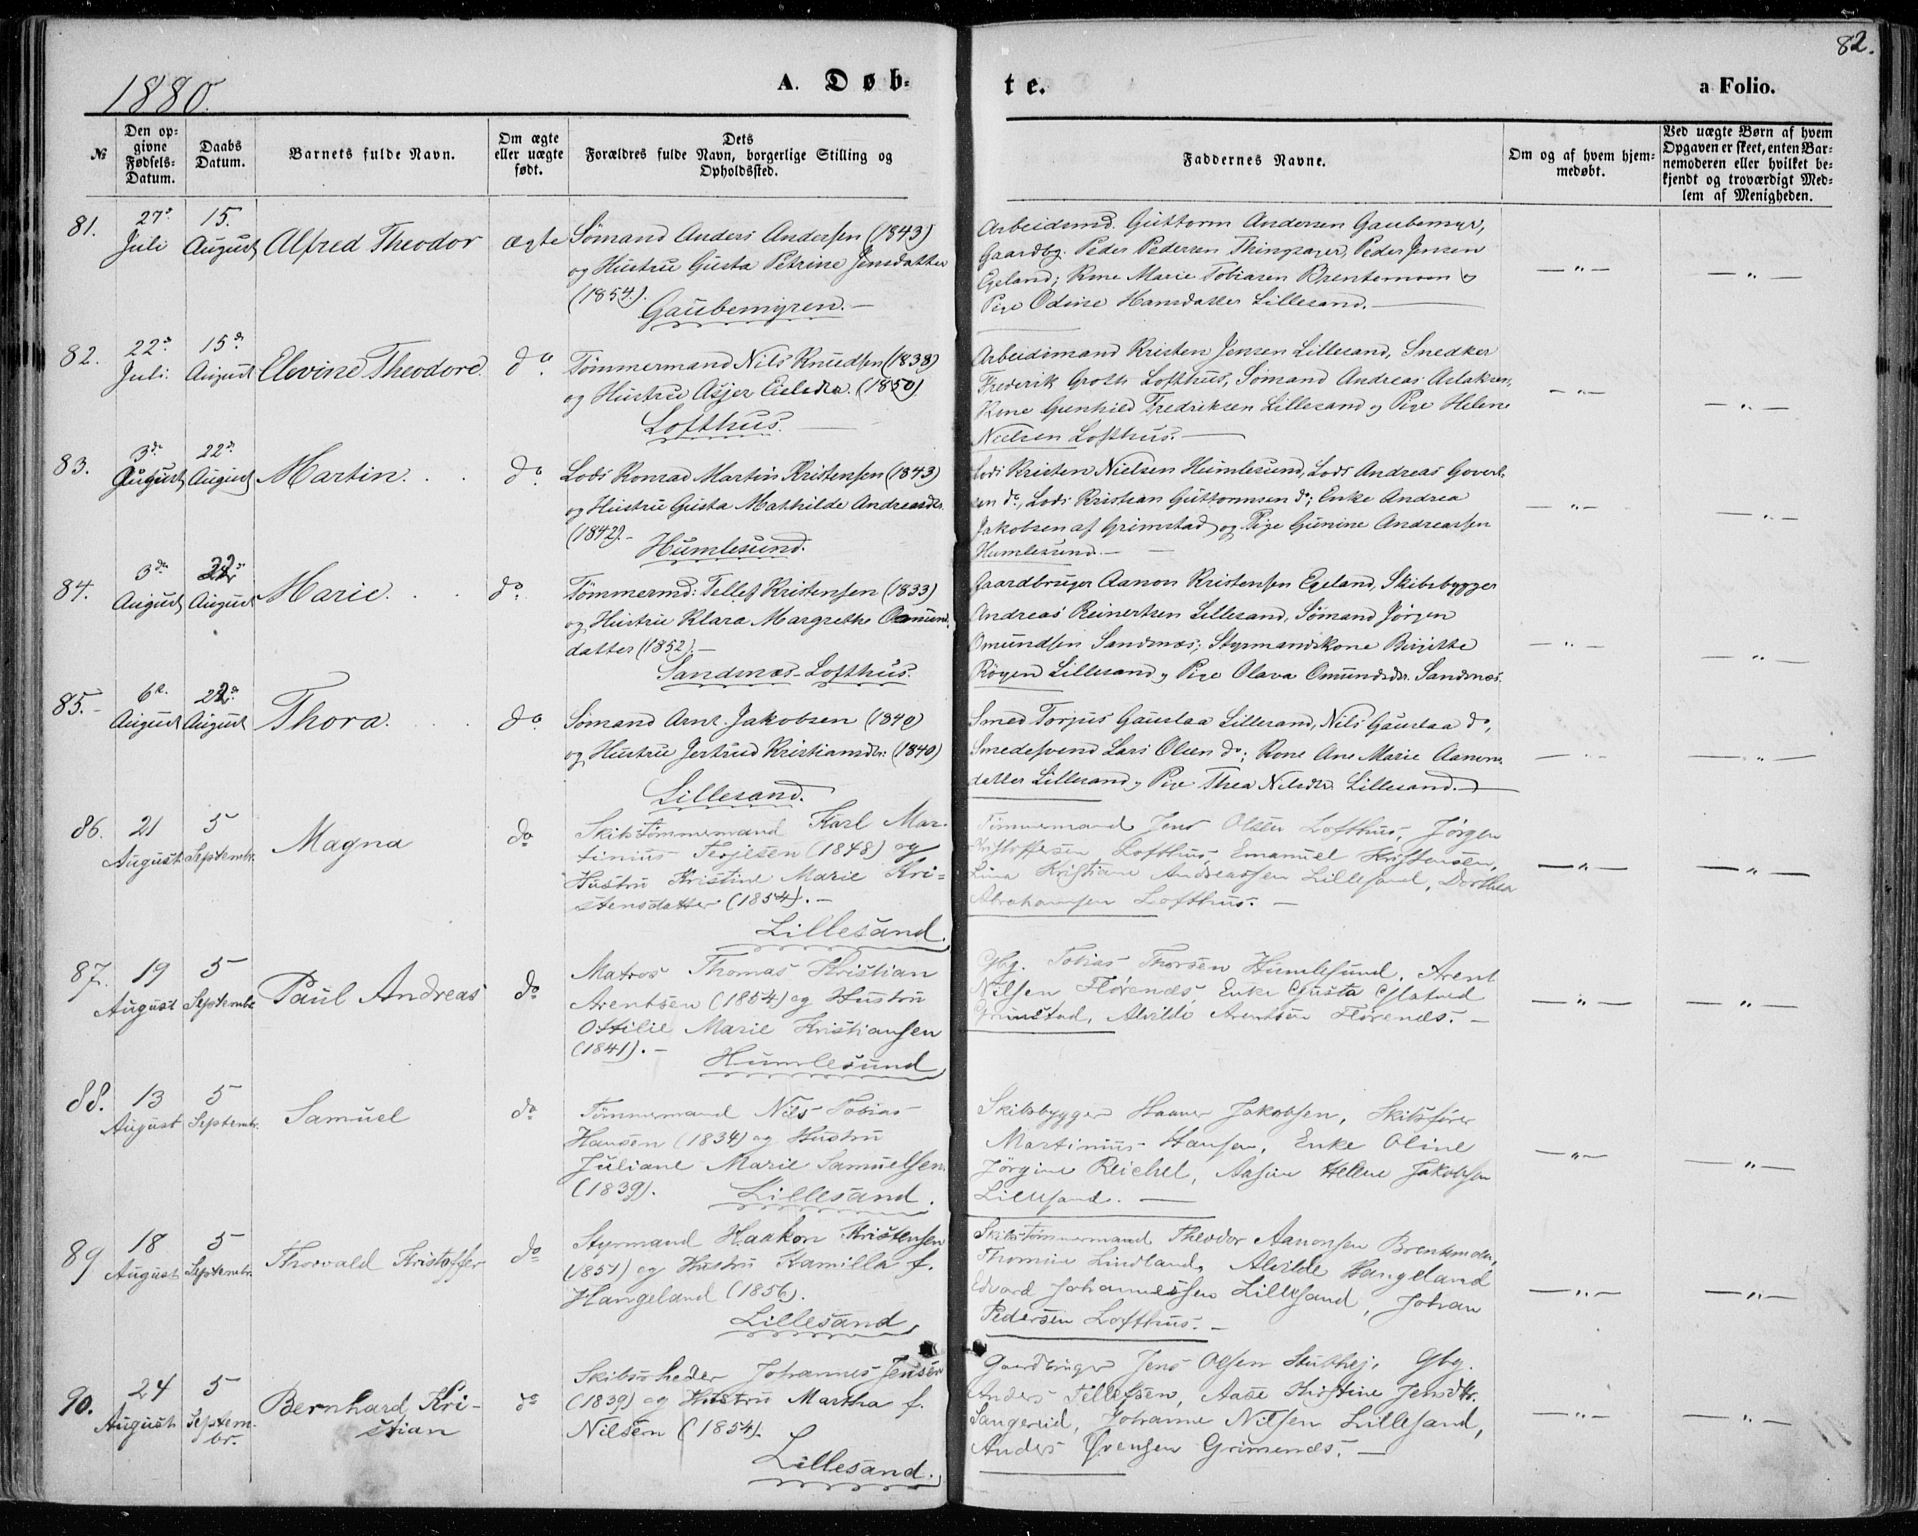 82.
1880.
A. Døb-
te.
a Folio.
№
Den op-
givne
Fødsels-
Datum.
Daabs
Datum.
Barnets fulde Navn.
Om ægte
eller uægte
født.
Dets
Forældres fulde Navn, borgerlige Stilling og
Opholdssted.
Faddernes Navne.
Om og af hvem hjem-
medøbt.
Ved uægte Børn af hvem
Opgaven er skeet, enten Bar-
nemoderen eller hvilket be-
kjendt og troværdigt Med-
lem af Menigheden.
81.
27de
Juli
15.
August
Alfred Theodor
ægte
Sømand Anders Andersen (1843)
og Hustru Gusta Petrine Jensdatter
(1854).
Gaubemyren.
Arbeidsmd. Guttorm Andersen Gaubemyr,
Gaardbg. Peder Pedersen Tingsager, Peder Jensen
Egeland; Kone Marie Tobiasen Brentemoen &
Pige Odine Hansdatter Lillesand.
— " —
— " —
82.
22de
Juli
15de
August
Elevine Theodore
do
Tømmermand Nils Knudsen (1838)
og Hustru Asjer (1850)
Lofthus.
Arbeidsmand Kristen Jensen Lillesand, Snedker
Frederik Groth Lofthus, Sømand Andreas Aslaksen,
Kone Gunhild Fredriksen Lillesand & Pige Helene
Nielsen Lofthus.
— " —
— " —
83.
3de
August
22de
August
Martin.
do
Lods Konrad Martin Kristensen (1843)
og Hustru Gusta Mathilde Andreasdtr.
(1842).
Humlesund.
Lods Kristen Nielsen Humlesund, Lods Andreas Govert-
sen do, Lods Kristian Guttormsen do; Enke Andrea
Jakobsen af Grimstad og Pige Gunine Andreassen
Humlesund.
— " —
— " —
84.
3de
August
22
August
Marie.
do
Tømmermd: Tellef Kristensen (1833)
og Hustru Klara Margrethe Omund-
datter (1852).
Sandsnæs-Lofthus.
Gaardbruger Aanon Kristensen Egeland, Skibsbygger
Andreas Reinertsen Lillesand, Sømand Jørgen
Omundsen Sandsnæs; Styrmandskone Birgitte
Røyen Lillesand & Pige Olava Omundsdtr. Sandsnæs.
— " —
— " —
85.
6te
August
22de
August
Thora.
do
Sømand Arnt Jakobsen (1840)
og Hustru Jertrud Kristiansdtr. (1840)
Lillesand.
Smed Torjus Gauslaa Lillesand, Nils Gauslaa do,
Smedesvend Lars Olsen do; Kone Ane Marie Aanons-
datter Lillesand & Pige Thea Nilsdtr. Lillesand.
— " —
— " —
86.
21
August
5
Septembr.
Magna
do
Skibstømmermand Karl Mar-
tinius Terjesen (1848) og
Hustru Kristine Marie Kri-
stensdatter (1854).
Lillesand.
Tømmermand Jens Olsen Lofthus, Jørgen
Kristoffersen Lofthus, Emanuel Kristensen,
Lina Kristiane Andreassen Lillesand, Dorthea
Abrahamsen Lofthus.
— " —
— " —
87.
19
August
5
Septembr
Paul Andreas
do
Matros Thomas Kristian
Arentsen (1854) og Hustru
Ottilie Marie Kristiansen
(1841).
Humlesund
Gbg. Tobias Thorsen Humlesund, Arent
Nilsen Florenæs, Enke Gusta
Grimstad, Alvilde Arentsen Florenæs.
— " —
— " —
88.
13
August
5
Septembr.
Samuel
do
Tømmermand Nils Tobias
Hansen (1834) og Hustru
Juliane Marie Samuelsen
(1839).
Lillesand.
Skibsbygger Jakobsen, Skibsfører
Martinius Hansen, Enke Oline
Jørgine Reichel, Aasine Helene Jakobsen
Lillesand.
— " —
— " —
89
18
August
5
Septembr.
Thorvald Kristoffer
do
Styrmand Haakon Kristensen
(1851) og Hustru Kamilla f.
Hangeland (1856).
Lillesand
Skibstømmermand Theodor Aanonsen Brentemoen,
Thomine Lindland, Alvilde Hangeland
Edvard Johannessen Lillesand, Johan
Pedersen Lofthus.
— " —
— " —
90.
24
August
5
Septem-
br.
Bernhard Kri-
stian
do
Skibsrheder Johannes Jensen
(1839) og Hustru Martha f.
Nilsen (1854).
Lillesand.
Gaardbruger Jens Olsen Gbg.
Anders Tellefsen, Aase Kirstine Jensdtr.
Sangereid, Johanne Nilsen Lillesand,
Anders Evensen Grimenæs.
— " —
— " —